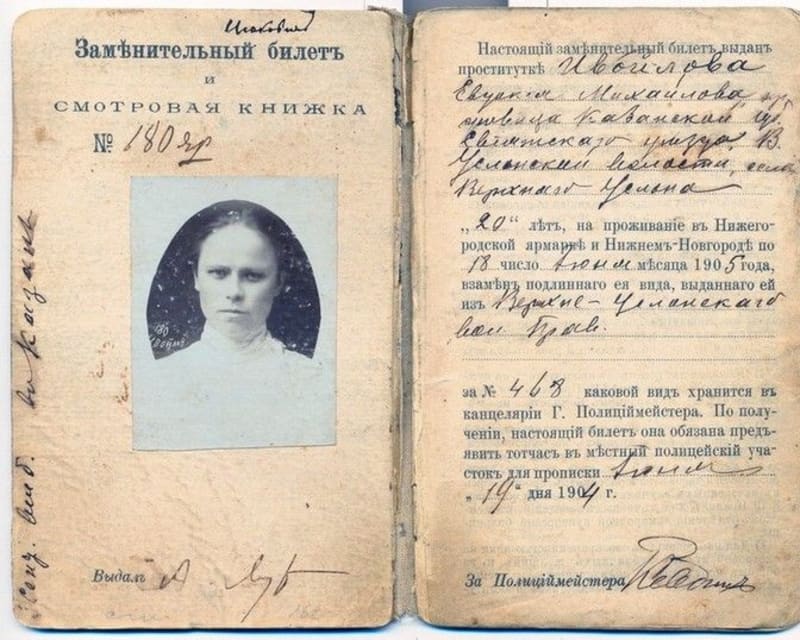 Замѣнительный билетъ
и
СМОТРОВАЯ КНИЖКА
№ 180 яр
180
Выдалъ
въ Казань
Настоящій замѣнительный билетъ выданъ
проституткѣ Ивойлова
Евдокія Михайлова
Казанской губ.
Свіяжскаго уѣзда, В.
Услонской волости, села
Верхняго Услона
„20“ лѣтъ, на проживаніе въ Нижего-
родской ярмаркѣ и Нижнемъ-Новгородѣ по
18 число Іюня мѣсяца 1905 года,
взамѣнъ подлиннаго ея вида, выданнаго ей
изъ Верхне-Услонскаго
вол. Прав.
за № 468 каковой видъ хранится въ
канцеляріи Г. Полиціймейстера. По полу-
ченіи, настоящій билетъ она обязана предъ-
явить тотчасъ въ мѣстный полицейскій уча-
стокъ для прописки. Іюня
„19“ дня 1904 г.
За Полиціймейстера